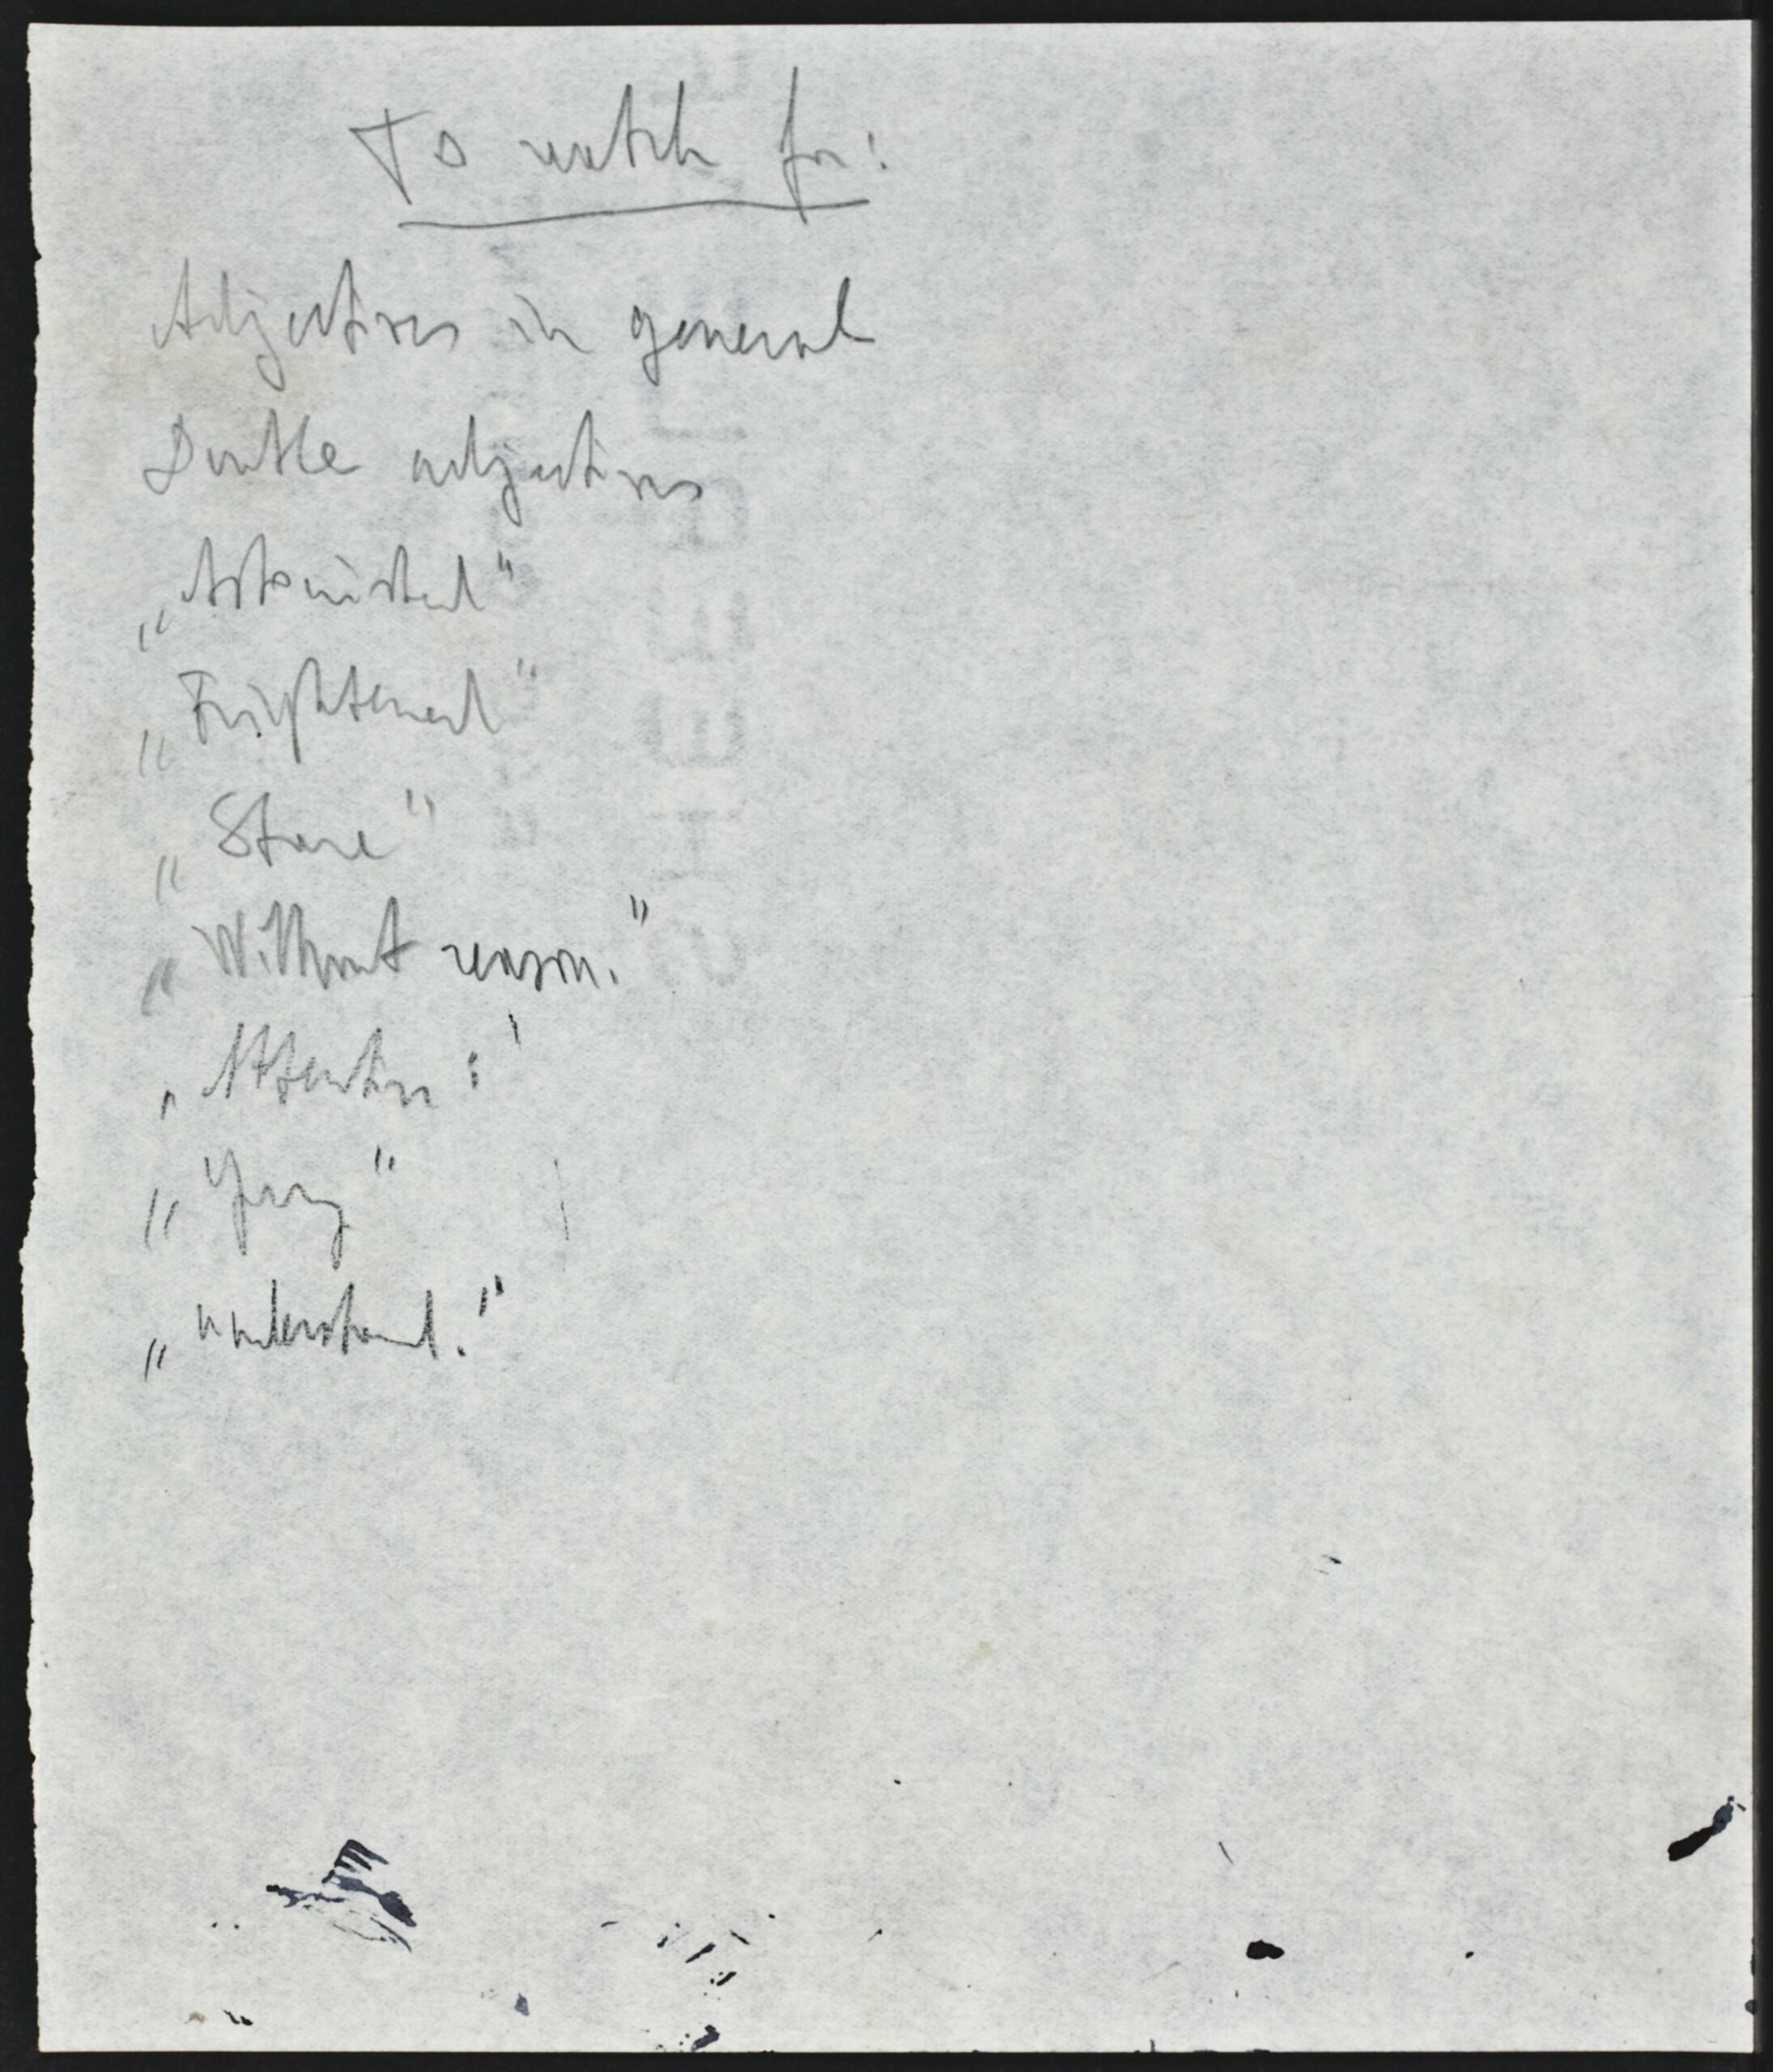 To watch for:
Adjectives in general
Double adjectives
„Astonished"
„Frightened"
„Stare"
„Without reason."
„Attention:'
„Young"
„understand."